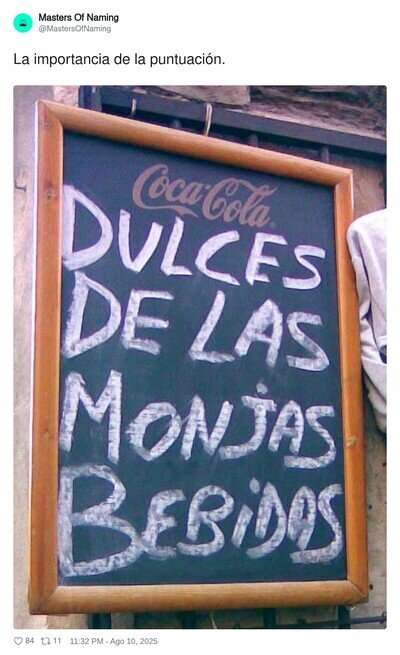 Masters Of Naming
@MastersOfNaming
La importancia de la puntuación.
Coca-Cola
DULCES
DE LAS
MONJAS
BEBIDAS
84 11 11:32 PM - Ago 10, 2025